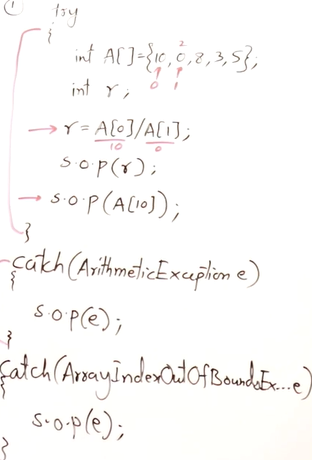 ① try
{
2
int A[]={10,0,2,3,5};
int r; 0 1
r=A[0]/A[1];
10 0
S.O.P(r);
S.O.P(A[10]);
}
catch(ArithmeticException e)
{
S.O.P(e);
}
catch(ArrayIndexOutOfBoundsEx...e)
{
S.O.P(e);
}